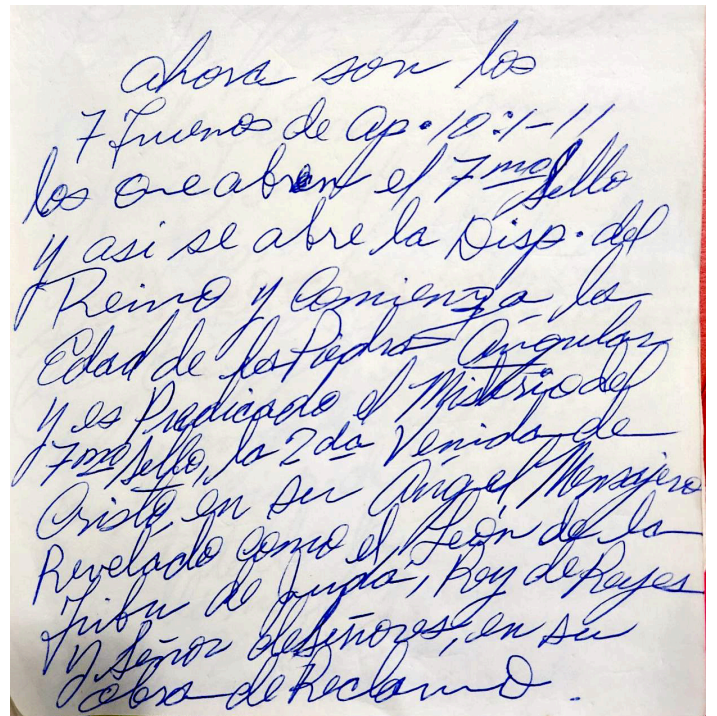 Ahora son los
7 Truenos de Ap. 10:1-11
los que abren el 7mo Sello
y asi se abre la Disp. del
Reino y Comienza la
Edad de la Piedra Angular
y es Predicado el Misterio del
7mo Sello, la 2da Venida de
Cristo en su Ángel Mensajero
Revelado como el León de la
Tribu de Judá, Rey de Reyes
y Señor de Señores, en su
obra de Reclamo.